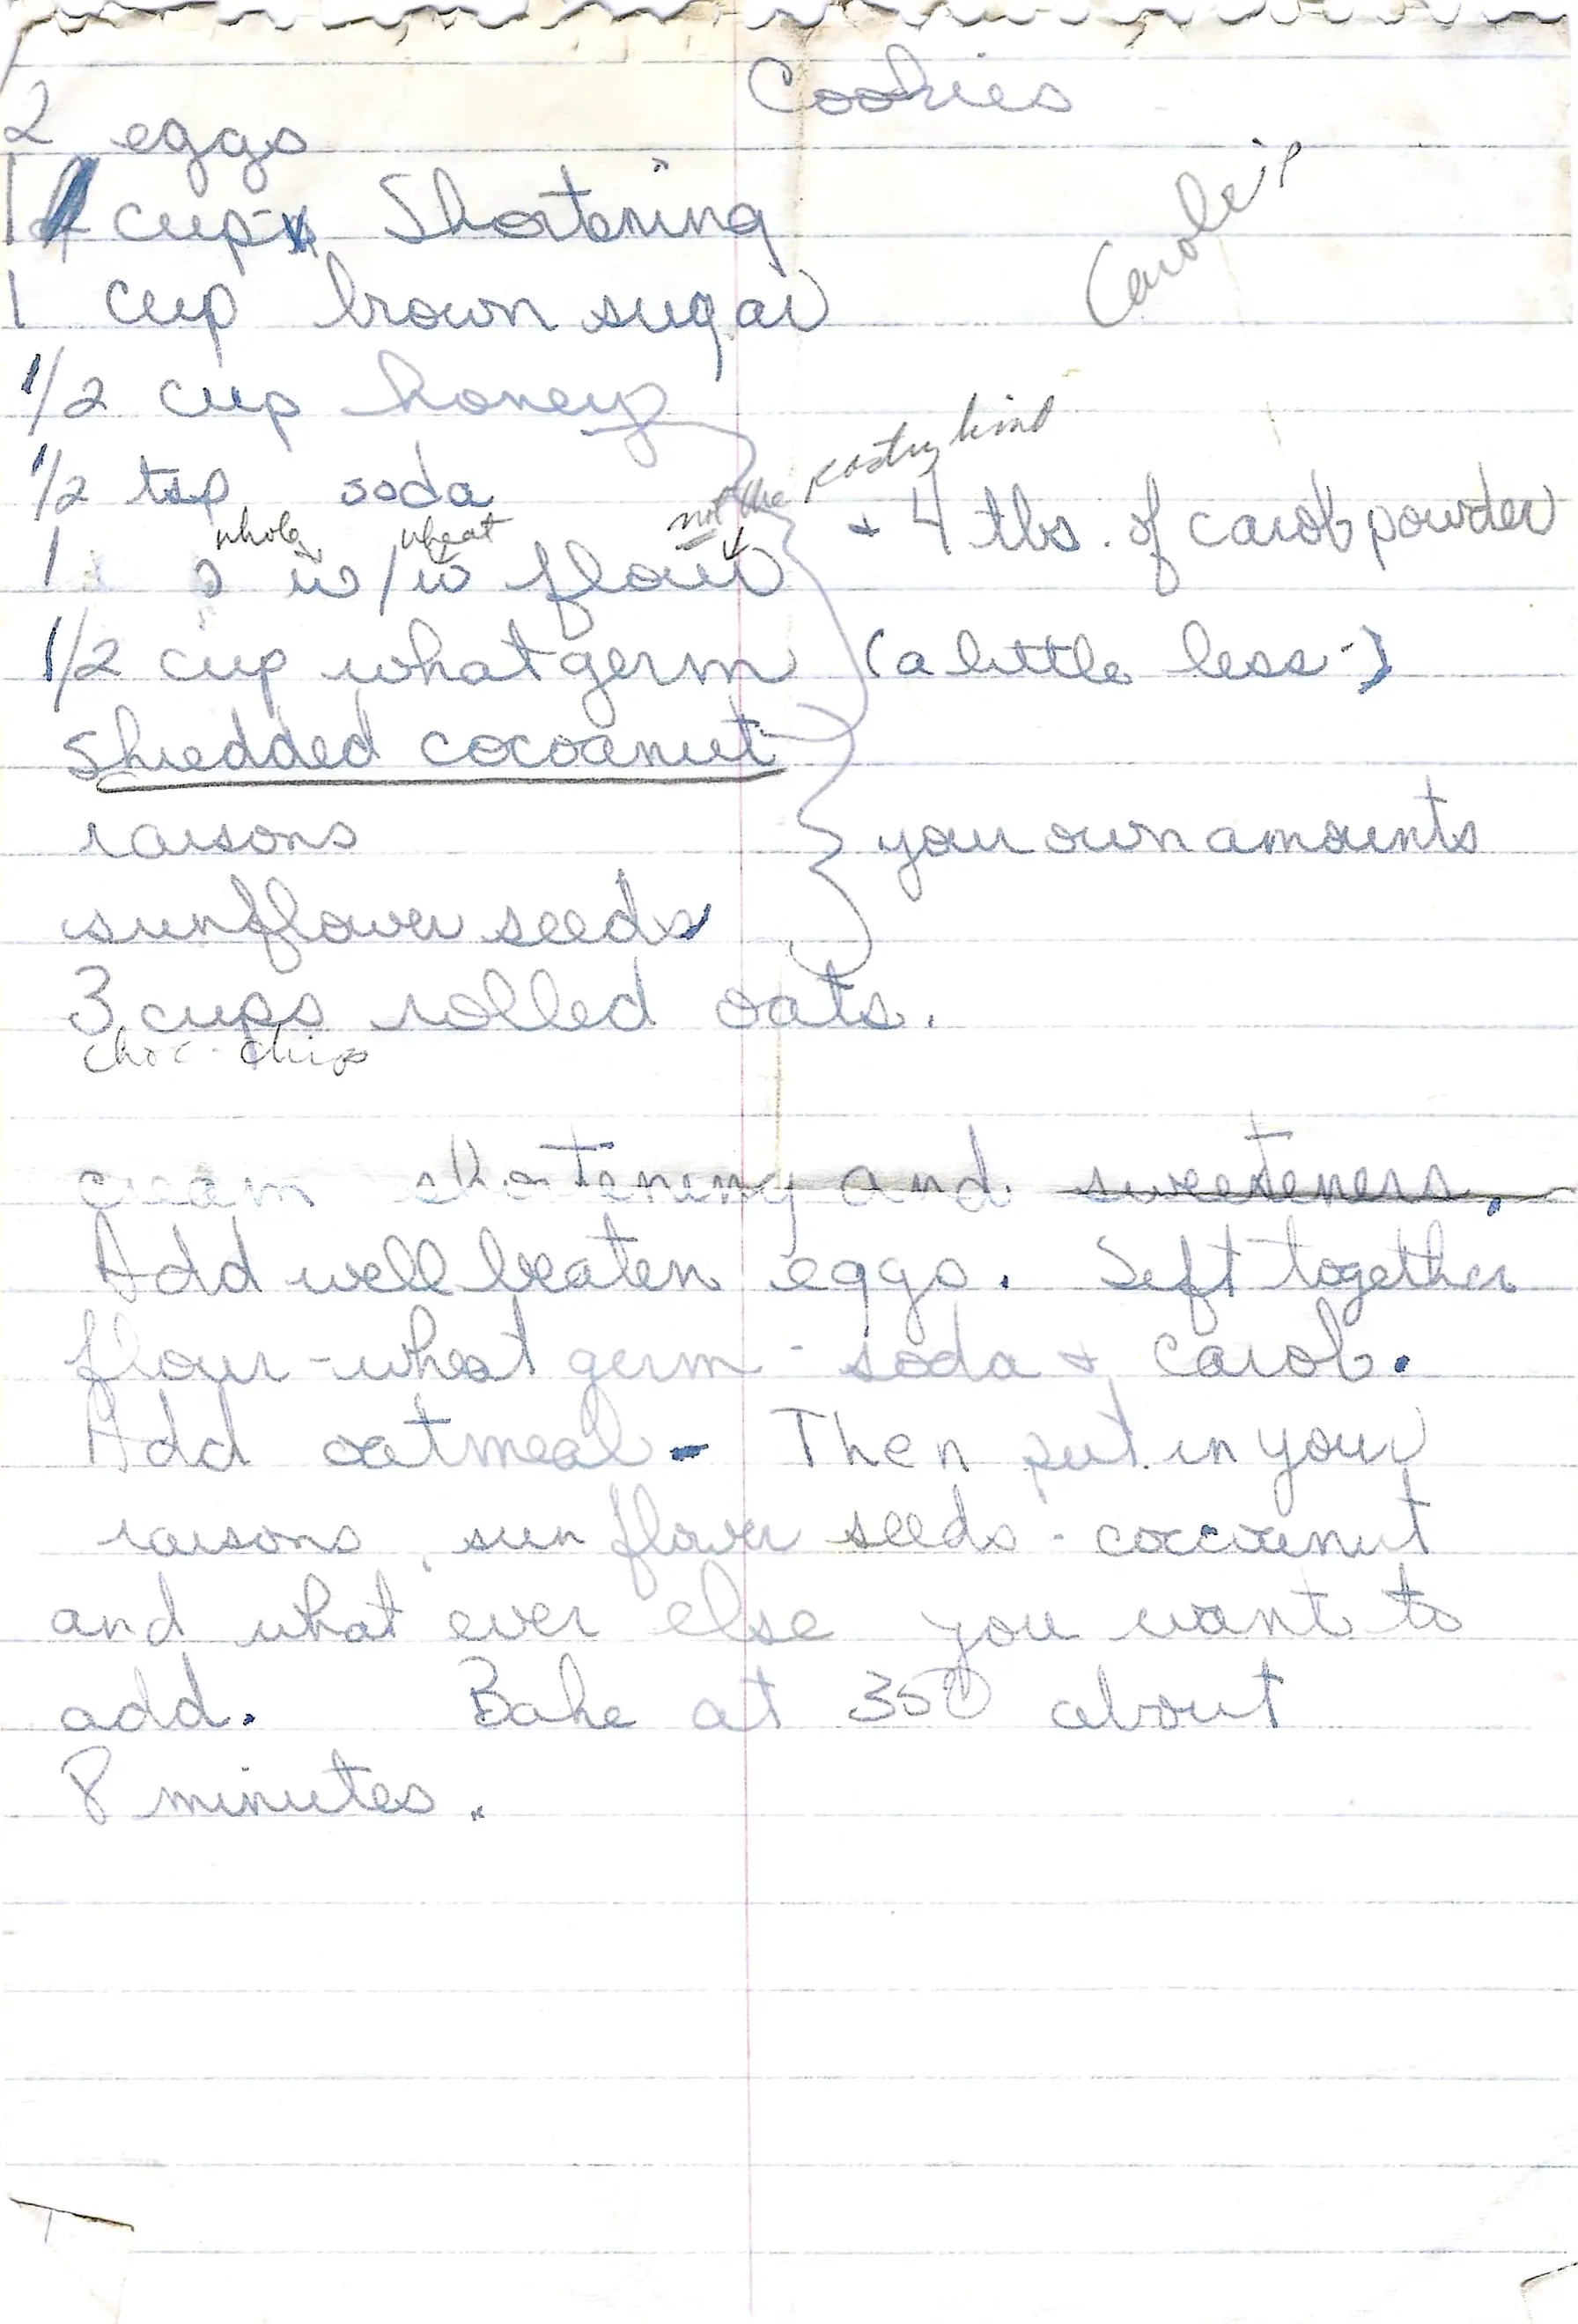 Cookies
Carole's
2 eggs
1 cup Shortening
1 cup brown sugar
1/2 cup honey
1/2 tsp soda
not the pastry kind
+ 4 tbs. of carob powder
whole wheat
1 w/w flour
1/2 cup what germ (a little less)
Shredded cocoanut
raisons
your own amounts
sunflower seeds
3 cups rolled oats.
choc chips
cream shortening and sweeteners.
Add well beaten eggs. Sift together
flour - wheat germ - soda + carob.
Add oatmeal - Then put in your
raisons, sun flower seeds - cocoanut
and what ever else you want to
add. Bake at 350 about
8 minutes.